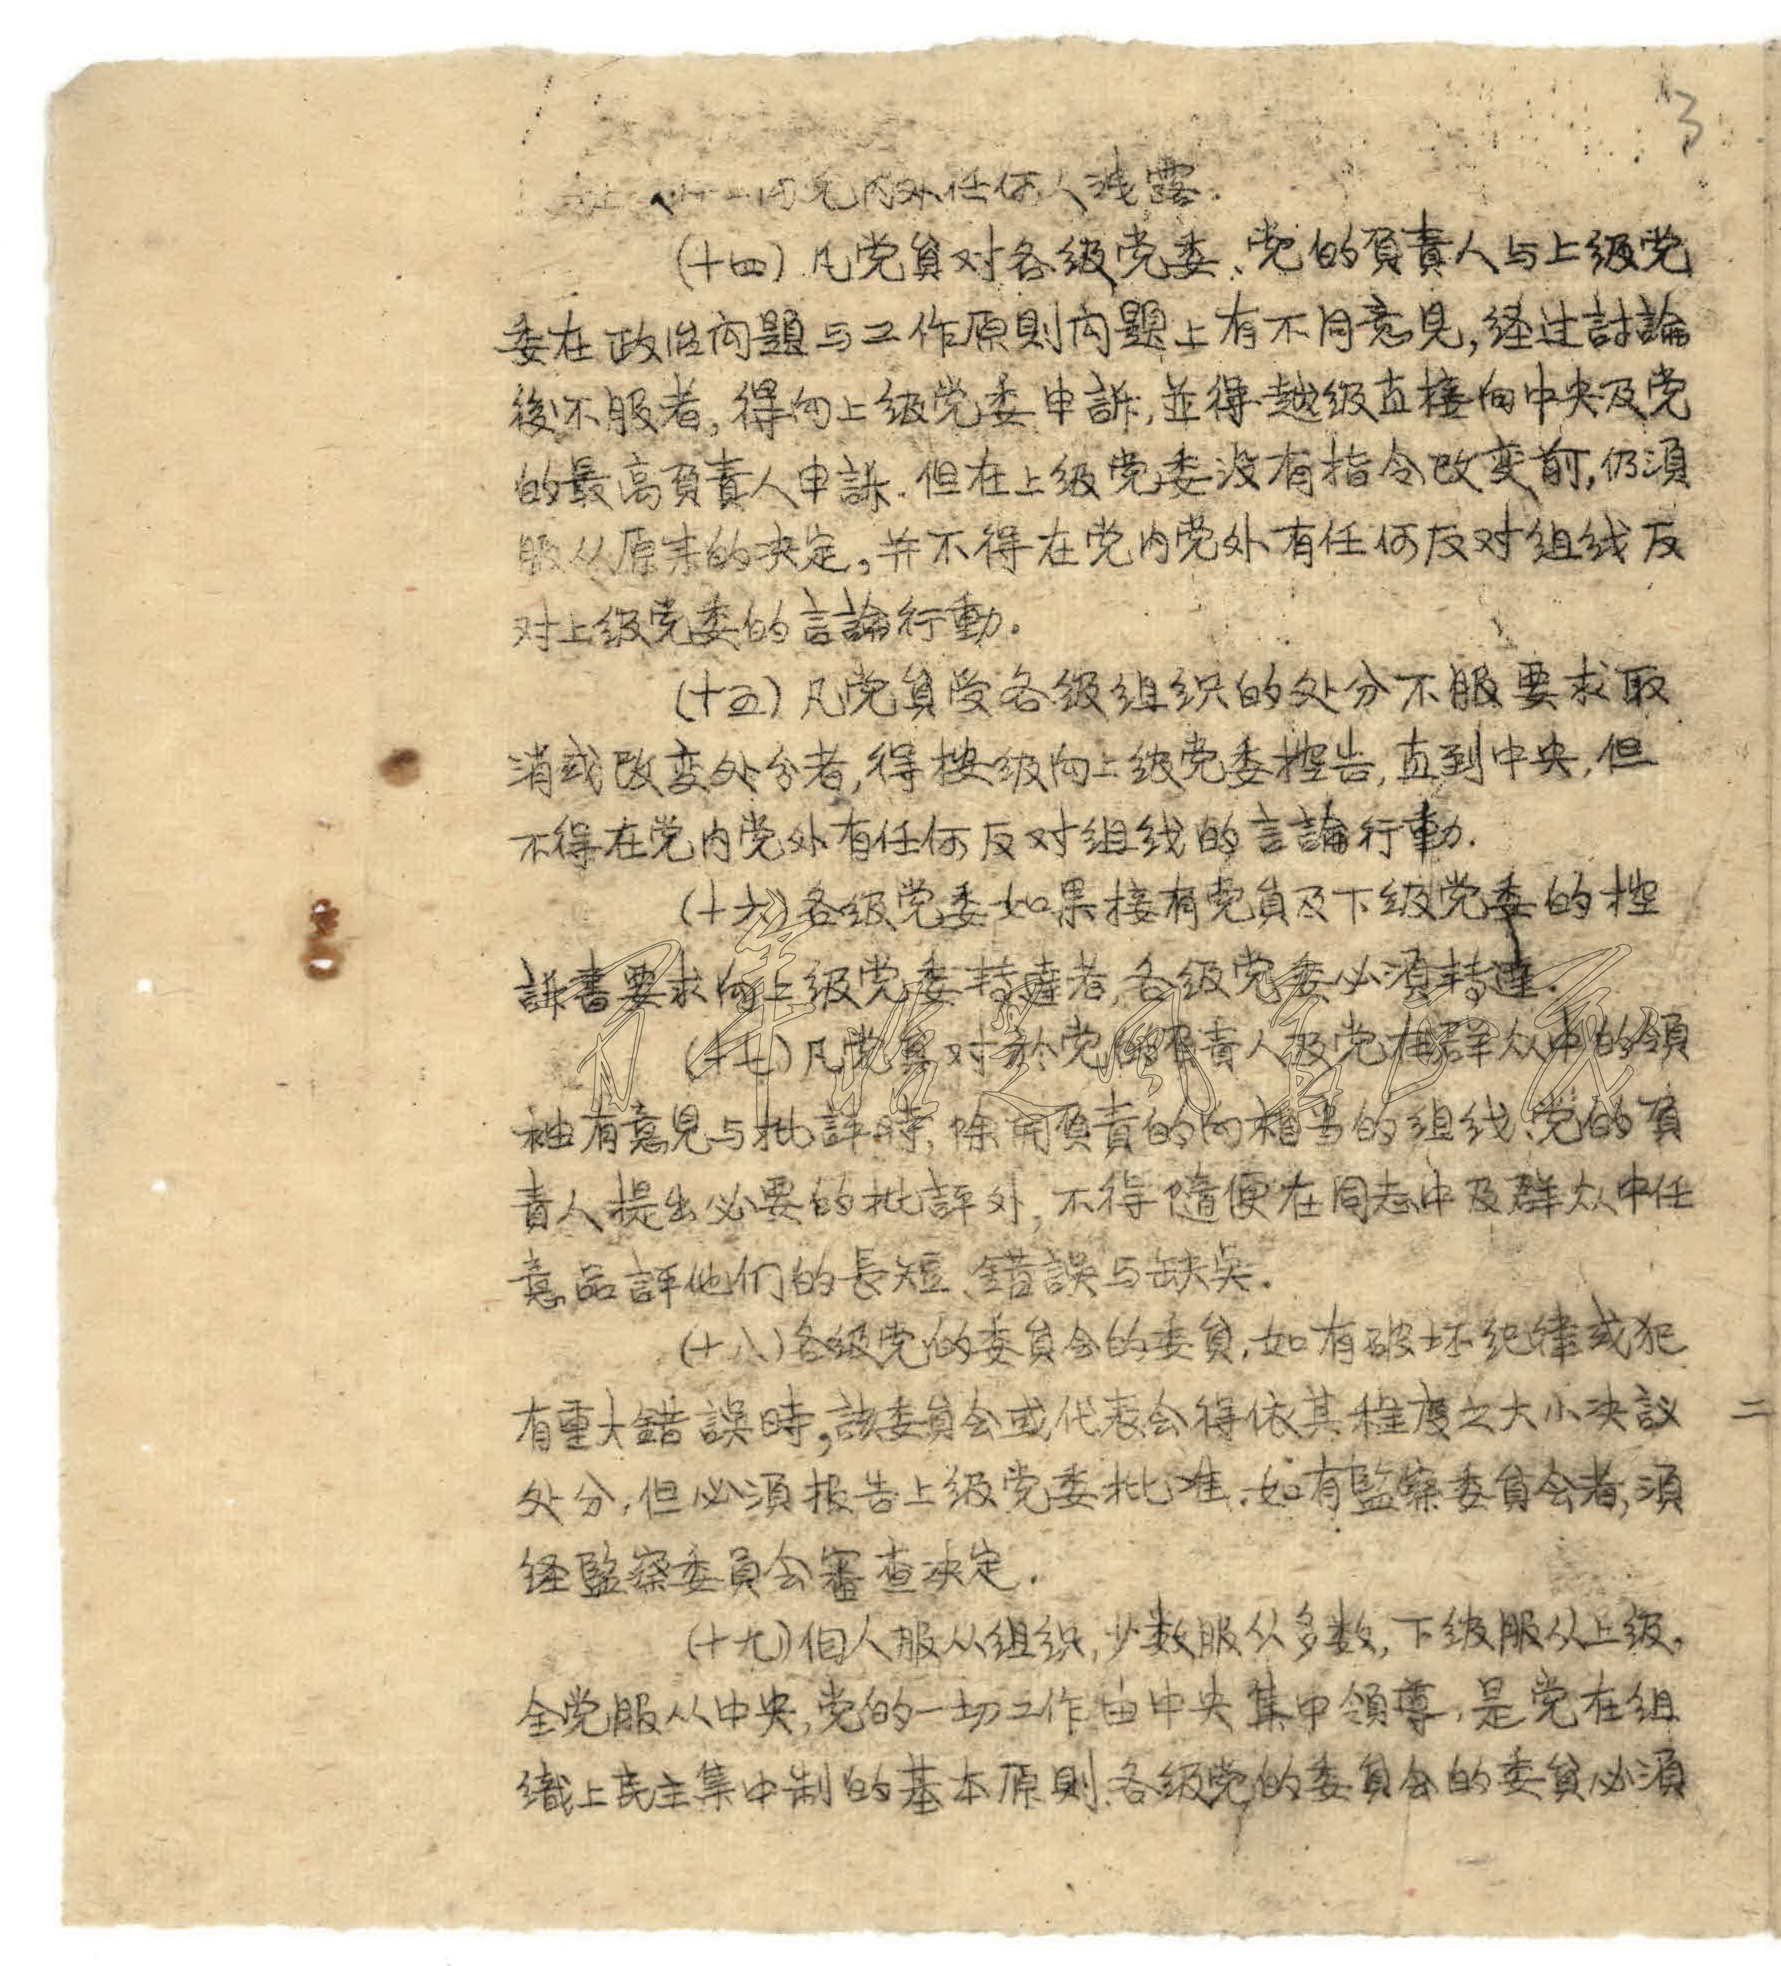 3
内党内外任何人洩露.
(十四)凡党員对各級党委、党的負責人与上級党
委在政治问題与工作原則问題上有不同意見,経过討論
後不服者,得向上級党委申訴,並得越級直接向中央及党
的最高負責人申訴.但在上級党委没有指令改变前,仍須
服从原来的决定,并不得在党内党外有任何反对组线反
对上級党委的言論行動.
(十五)凡党員受各級组织的处分不服要求取
消或改变处分者,得按級向上級党委控告,直到中央,但
不得在党内党外有任何反对组线的言論行動.
(十六)各級党委如果接有党員及下級党委的控
訴書要求向上級党委转達者,各級党委必須转達.
(十七)凡党員对於党的負責人及党在群众中的領
袖有意見与批評時,除開負責的向相当的组线、党的負
責人提出必要的批評外,不得隨便在同志中及群众中任
意品評他们的長短、錯誤与缺点.
(十八)各級党的委員会的委員,如有破坏纪律或犯
有重大錯誤時,該委員会或代表会得依其程度之大小决議
处分,但必須报告上級党委批准.如有監察委員会者,須
経監察委員会審查决定.
(十九)個人服从组织,少数服从多数,下級服从上級,
全党服从中央,党的一切工作由中央集中領導,是党在组
織上民主集中制的基本原則.各級党的委員会的委員必須
二
百年恰是風華正茂